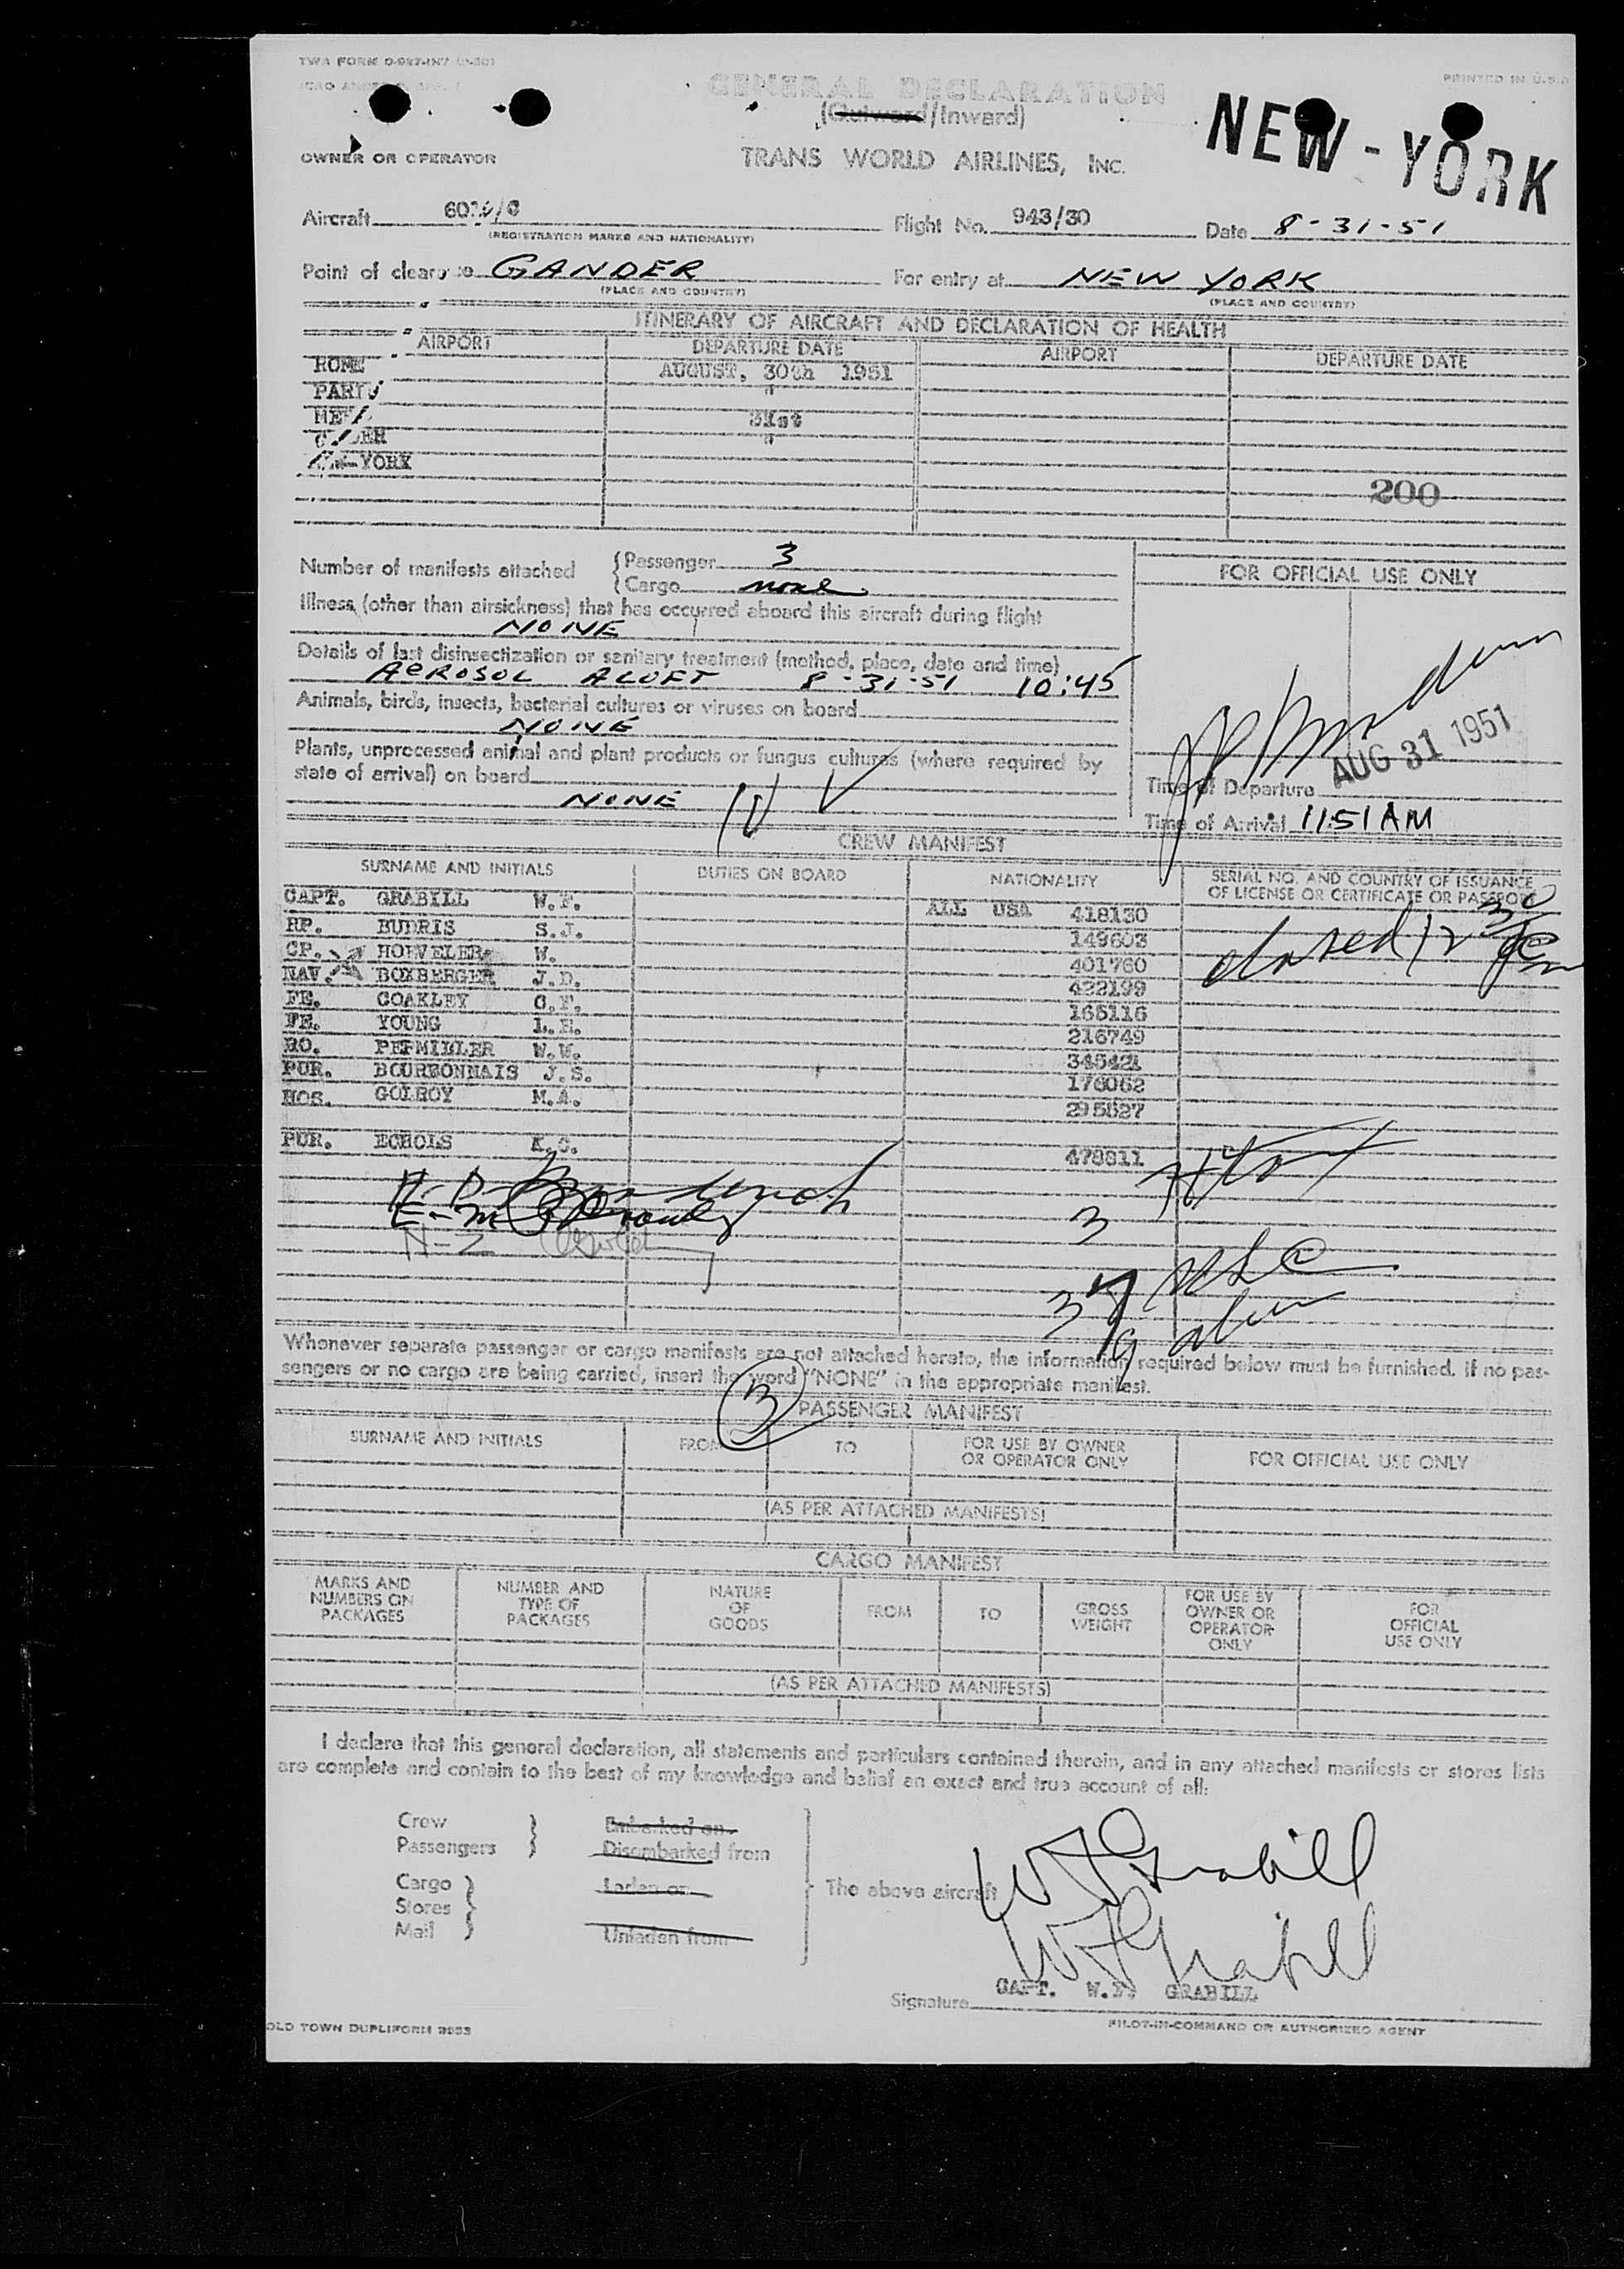 TWA FORM
PRINTED IN U.S.A.
GENERAL DECLARATION
(Outward/Inward)
NEW-YORK
OWNER OR OPERATOR TRANS WORLD AIRLINES, INC.
Aircraft Flight No. 943/30 Date 8-31-51
(REGISTRATION MARKS AND NATIONALITY)
Point of GANDER For entry at NEW YORK
(PLACE AND COUNTRY) (PLACE AND COUNTRY)
ITINERARY OF AIRCRAFT AND DECLARATION OF HEALTH
AIRPORT DEPARTURE DATE AIRPORT DEPARTURE DATE
ROME AUGUST, 30th 1951
"
31st
"
-YORK
200
Number of manifests attached { Passenger 3
{ Cargo none
FOR OFFICIAL USE ONLY
Illness (other than airsickness) that has occurred aboard this aircraft during flight
NONE
Details of last disinsectization or sanitary treatment (method, place, date and time)
AEROSOL ALOFT 8-31-51 10:45
Animals, birds, insects, bacterial cultures or viruses on board
NONE
Plants, unprocessed animal and plant products or fungus cultures (where required by
state of arrival) on board
NONE
AUG 31 1951
Time of Departure
Time of Arrival 11:51 AM
CREW MANIFEST
SURNAME AND INITIALS DUTIES ON BOARD NATIONALITY SERIAL NO. AND COUNTRY OF ISSUANCE
OF LICENSE OR CERTIFICATE OR PASSPORT
CAPT. GRABILL W.F. ALL USA 418130
RP. BUDRIS S.J. 149603
CP. HOEVELER W. 401760
NAV. BOXBERGER J.D. 422199
FE. COAKLEY C.F. 165116
FE. YOUNG L.H. 216749
RO. PEFMILLER W.W. 345421
PUR. BOURBONNAIS J.S. 176062
HOS. GOLROY M.A. 295827
PUR. ECHOLS K.C. 478811
closed 12
3
3
Whenever separate passenger or cargo manifests are not attached hereto, the information required below must be furnished. If no pas-
sengers or no cargo are being carried, insert the word "NONE" in the appropriate manifest.
3
PASSENGER MANIFEST
SURNAME AND INITIALS FROM TO FOR USE BY OWNER
OR OPERATOR ONLY FOR OFFICIAL USE ONLY
(AS PER ATTACHED MANIFESTS)
CARGO MANIFEST
MARKS AND
NUMBERS ON
PACKAGES
NUMBER AND
TYPE OF
PACKAGES
NATURE
OF
GOODS
FROM
TO
GROSS
WEIGHT
FOR USE BY
OWNER OR
OPERATOR
ONLY
FOR
OFFICIAL
USE ONLY
(AS PER ATTACHED MANIFESTS)
I declare that this general declaration, all statements and particulars contained therein, and in any attached manifests or stores lists
are complete and contain to the best of my knowledge and belief an exact and true account of all:
Crew } Embarked on
Passengers } Disembarked from
Cargo } Laden on
Stores }
Mail } Unladen from
The above aircraft
WFGrabill
WFGrabill
CAPT. W.F. GRABILL
Signature
PILOT-IN-COMMAND OR AUTHORIZED AGENT
OLD TOWN DUPLIFORM